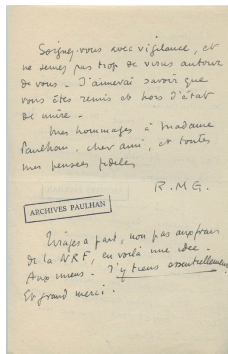 Soignez-vous avec vigilance, et
ne semez pas trop de virus autour
de vous - J'aimerai savoir que
vous êtes remis et hors d'état
de nuire -
Mes hommages à Madame
Paulhan, cher ami, et toutes
mes pensées fidèles
R.M.G.
ARCHIVES PAULHAN
Tirages à part, non pas aux frais
de la NRF, en voilà une idée -
Aux miens - J'y tiens essentiellement
Et grand merci.